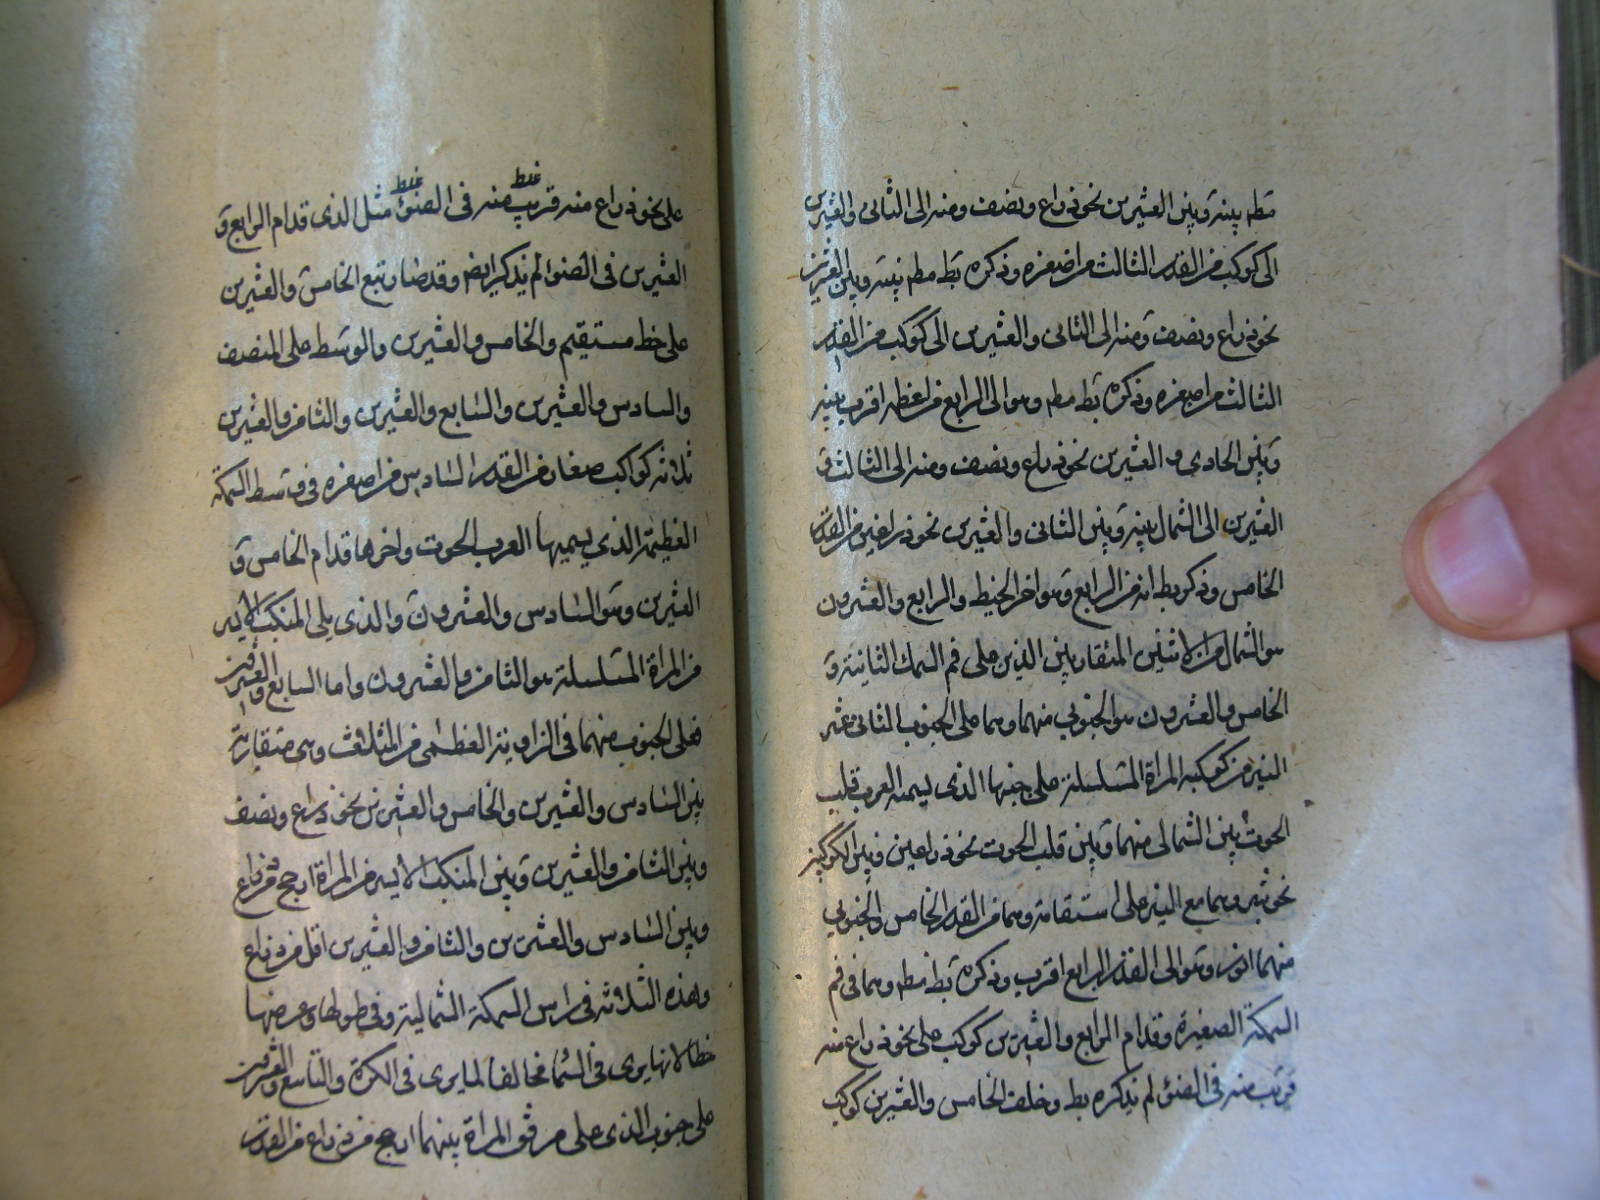 مطه بينه وبين العشرين نحو ذراع ونصف ومنه الى الثانى والعشرين
الى كوكب من القدر الثالث من اصغره وذكره بط مطه بينه وبين العشرين
نحو ذراع ونصف ومنه الى الثانى والعشرين الى كوكب من القدر
الثالث من اصغره وذكره بط مطه وهو الى الرابع من اعظمه اقرب بينه
وبين الحادى والعشرين نحو ذراع ونصف ومنه الى الثالث و
العشرين الى الشمال بينه وبين الثانى والعشرين نحو ذراعين من القدر
الخامس وذكر بط انه من الرابع وهو اخر الخيط والرابع والعشرون
هو الشمالى من الاثنين المتقاربين الذين على فم السمك الثانية و
الخامس والعشرون هو الجنوبى منهما وهما على الجنوب الثانى عشر
النير من كوكبه المراة المسلسلة على جنبها الذى يسميه العرب قلب
الحوت بين الشمالى منهما وبين قلب الحوت نحو ذراعين وبين الكوكبين
نحو شبر وهما مع النير على استقامة وهما من القدر الخامس والجنوبى
منهما انور وهو الى القدر الرابع اقرب وذكره بط مطه وهما فى فم
السمكة الصغيرة وقدام الرابع والعشرين كوكب على نحو ذراع منه
قريب منه فى الضوء لم يذكره بط وخلف الخامس والعشرين كوكب
على نحو ذراع منه قريب منه فى الضوء مثل الذى قدام الرابع و
العشرين فى الضوء لم يذكر ايضا وقد صار مع الخامس والعشرين
على خط مستقيم والخامس والعشرين والوسط على المنصف
والسادس والعشرين والسابع والعشرين والثامن والعشرين
ثلاثة كواكب صغار من القدر السادس من اصغره فى وسط السمكة
العظيمة الذى يسميها العرب الحوت واخرها قدام الخامس و
العشرين وهو السادس والعشرون والذى يلى المنكب الايسر
من المراة المسلسلة هو الثامن والعشرون واما السابع والعشرين
فعلى الجنوب منهما فى الزاوية العظمى من المثلث وهى متقاربة
بين السادس والعشرين والخامس والعشرين نحو ذراع ونصف
وبين الثامن والعشرين وبين المنكب الايسر من المراة ارجح من ذراع
وبين السادس والعشرين والثامن والعشرين اقل من ذراع
وهذه الثلاثة فى راس السمكة الشمالية وفى طولها وعرضها
خطا لانها يرى فى السما مخالفا لما يرى فى الكرة والتاسع والعشرين
على جنوب الذى على مرفق المراة بينهما ارجح من ذراع من القدر